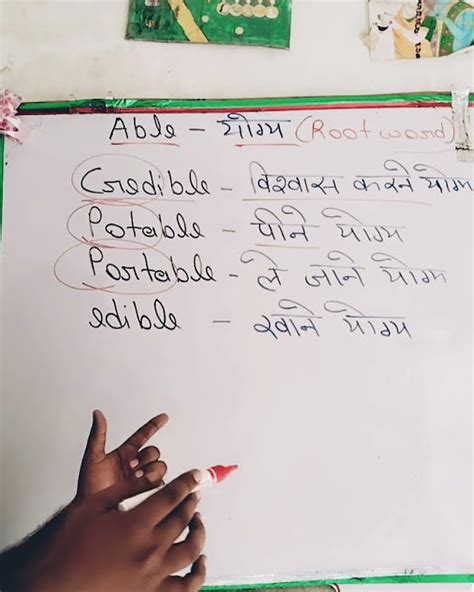 Able - योग्य (Root word)
Credible - विश्वास करने योग्य
Potable - पीने योग्य
Portable - ले जाने योग्य
edible - खाने योग्य